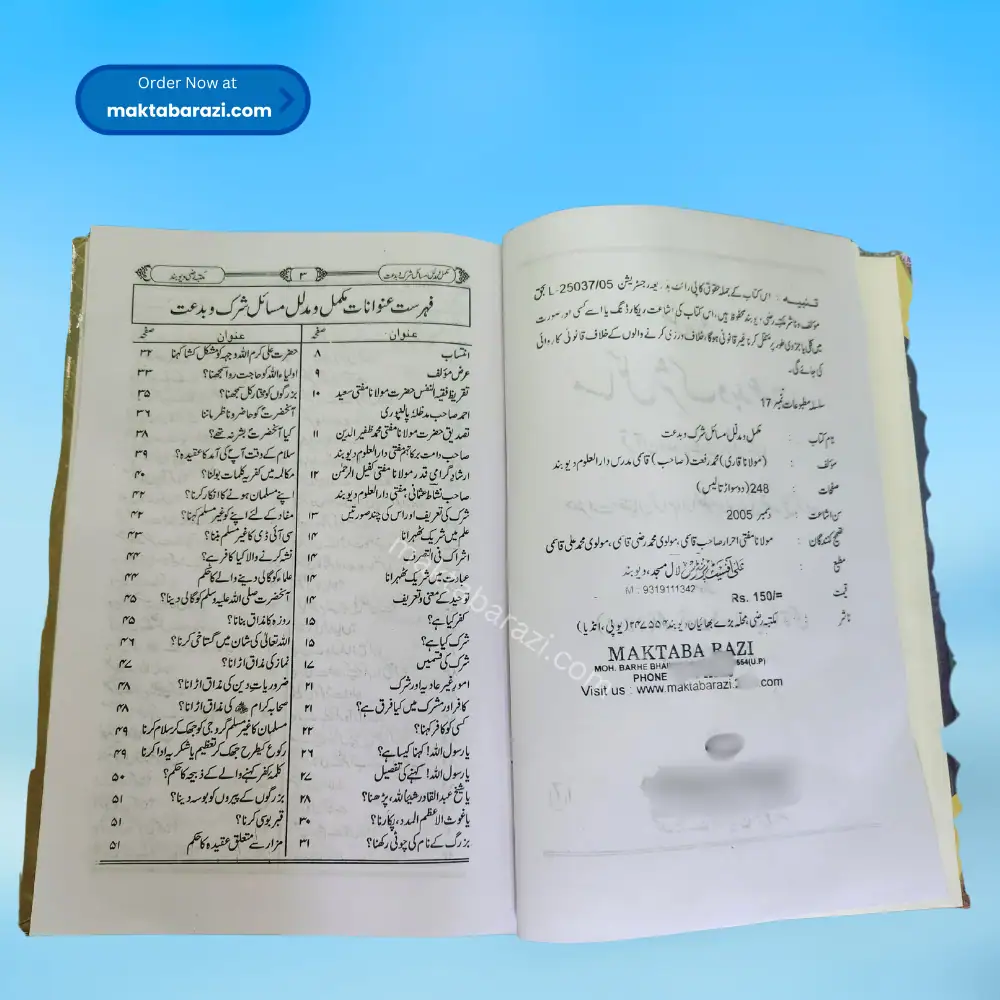 Order Now at
maktabarazi.com
تنبیہ : اس کتاب کے جملہ حقوق کاپی رائٹ بذریعہ رجسٹریشن L-25037/05 بحق
مؤلف و ناشر مکتبہ رضی، دیوبند محفوظ ہیں، اس کتاب کی اشاعت ریکارڈنگ یا اسے کسی اور صورت
میں کلی یا جزوی طور پر منتقل کرنا غیر قانونی ہوگا، خلاف ورزی کرنے والوں کے خلاف قانونی کاروائی
کی جائے گی۔
سلسلہ مطبوعات نمبر 17
نام کتاب : مکمل و مدلل مسائل شرک و بدعت
مؤلف : (مولانا قاری) محمد رفعت (صاحب) قاسمی مدرس دارالعلوم دیوبند
صفحات : 248 (دو سو اڑتالیس)
سن اشاعت : دسمبر 2005
تصحیح کنندگان : مولانا مفتی احرار صاحب قاسمی، مولوی محمد رضی قاسمی، مولوی محمد علی قاسمی
مطبع : علی آفسیٹ پرنٹرس لال مسجد، دیوبند
M : 9319111342
قیمت : Rs. 150/=
ناشر : مکتبہ رضی محلہ بڑے بھائیان دیوبند ۲۴۷۵۵۴ (یوپی، انڈیا)
MAKTABA RAZI
MOH. BARHE BHAI 554(U.P)
PHONE
Visit us : www.maktabarazi.com
مکمل و مدلل مسائل شرک و بدعت ۳ مکتبہ رضی دیوبند
فہرست عنوانات مکمل و مدلل مسائل شرک و بدعت
عنوان صفحہ عنوان صفحہ
انتساب ۸ حضرت علی کرم اللہ وجہہ کو مشکل کشا کہنا ۳۲
عرض مؤلف ۹ اولیاء اللہ کو حاجت روا سمجھنا؟ ۳۳
تقریظ فقیہ النفس حضرت مولانا مفتی سعید ۱۰ بزرگوں کو مختار کل سمجھنا؟ ۳۵
احمد صاحب مدظلہ پالنپوری آنحضرتؐ کو حاضر و ناظر ماننا ۳۶
تصدیق حضرت مولانا مفتی محمد ظفیر الدین ۱۱ کیا آنحضرتؐ بشر نہ تھے؟ ۳۸
صاحب دامت برکاتہم مفتی دارالعلوم دیوبند سلام کے وقت آپؐ کی آمد کا عقیدہ؟ ۳۹
ارشاد گرامی قدر مولانا مفتی کفیل الرحمٰن ۱۲ مکالمہ میں کفریہ کلمات بولنا؟ ۴۰
صاحب نشاط عثمانی، مفتی دارالعلوم دیوبند اپنے مسلمان ہونے کا انکار کرنا؟ ۴۲
شرک کی تعریف اور اس کی چند صورتیں ۱۳ مفاد کے لئے اپنے کو غیر مسلم کہنا؟ ۴۲
علم میں شریک ٹھہرانا ۱۴ سی آئی ڈی کا غیر مسلم بننا؟ ۴۳
اشراک فی التصرف ۱۴ نشہ کرنے والا کیا کافر ہے؟ ۴۴
عبادت میں شریک ٹھہرانا ۱۴ علماء کو گالی دینے والے کا حکم ۴۴
توحید کے معنی و تعریف ۱۴ آنحضرت صلی اللہ علیہ وسلم کو گالی دینا؟ ۴۵
کفر کیا ہے؟ ۱۵ روزہ کا مذاق بنانا؟ ۴۵
شرک کیا ہے؟ ۱۵ اللہ تعالیٰ کی شان میں گستاخی کرنا؟ ۴۶
شرک کی قسمیں ۱۷ نماز کی مذاق اڑانا؟ ۴۷
امور غیر عادیہ اور شرک ۲۱ ضروریات دین کی مذاق اڑانا؟ ۴۸
کافر اور مشرک میں کیا فرق ہے؟ ۲۱ صحابہ کرامؓ کی مذاق اڑانا؟ ۴۸
کسی کو کافر کہنا؟ ۲۲ مسلمان کا غیر مسلم گرو جی کو جھک کر سلام کرنا ۴۹
یا رسول اللہ! کہنا کیسا ہے؟ ۲۶ رکوع کی طرح جھک کر تعظیم یا شکریہ ادا کرنا ۴۹
یا رسول اللہ! کہنے کی تفصیل ۲۷ کلمۂ کفر کہنے والے کے ذبیحہ کا حکم؟ ۵۰
یا شیخ عبدالقادر شیئاً للہ، پڑھنا؟ ۲۸ بزرگوں کے پیروں کو بوسہ دینا؟ ۵۱
یا غوث الاعظم المدد، پکارنا؟ ۳۰ قبر بوسی کرنا؟ ۵۱
بزرگ کے نام کی چوٹی رکھنا؟ ۳۱ مزار سے متعلق عقیدہ کا حکم ۵۱
maktabarazi.com